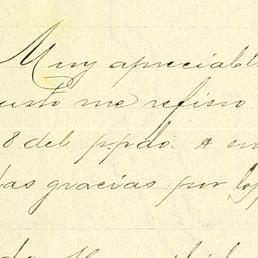 Muy apreciabl
usto me refiero
8 del ppdo. A
das gracias por